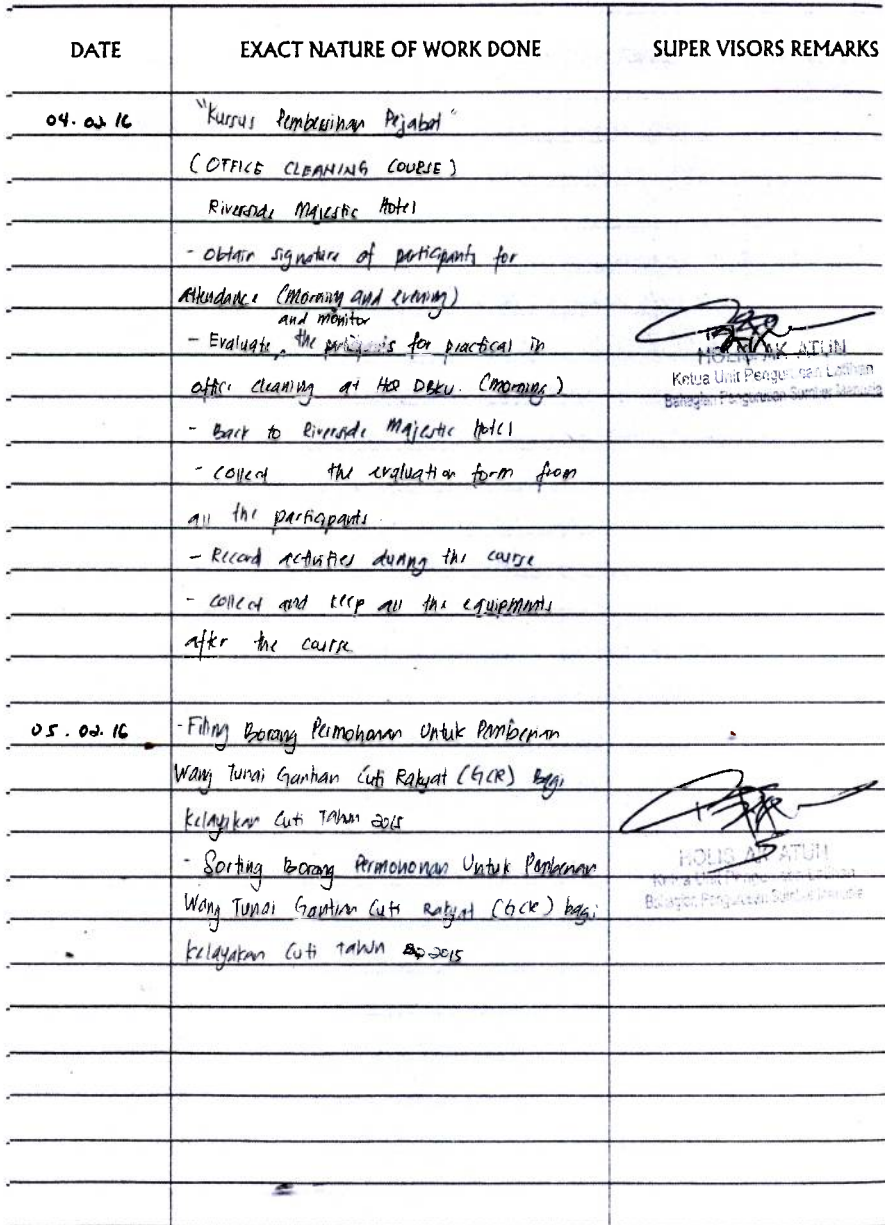 DATE EXACT NATURE OF WORK DONE SUPER VISORS REMARKS
04.02.16 "Kursus Pembersihan Pejabat"
(OFFICE CLEANING COURSE)
Riverside Majestic Hotel
- Obtain signature of participants for
attendance (morning and evening)
and monitor
- Evaluate, the participants for practical in
office cleaning at HQ DBKU. (morning)
- Back to Riverside Majestic Hotel
- Collect the evaluation form from
all the participants.
- Record activities during the course
- collect and keep all the equipments
after the course
HOLIS AK ATUN
Ketua Unit Pengurusan Latihan
Bahagian Pengurusan Sumber Manusia
05.02.16 - Filing Borang Permohonan Untuk Pemberian
Wang Tunai Gantian Cuti Rakyat (GCR) Bagi
Kelayakan Cuti Tahun 2015
- Sorting Borang Permohonan Untuk Pemberian
Wang Tunai Gantian Cuti Rakyat (GCR) bagi
Kelayakan Cuti Tahun 2015
HOLIS AK ATUN
Ketua Unit Pengurusan Latihan
Bahagian Pengurusan Sumber Manusia